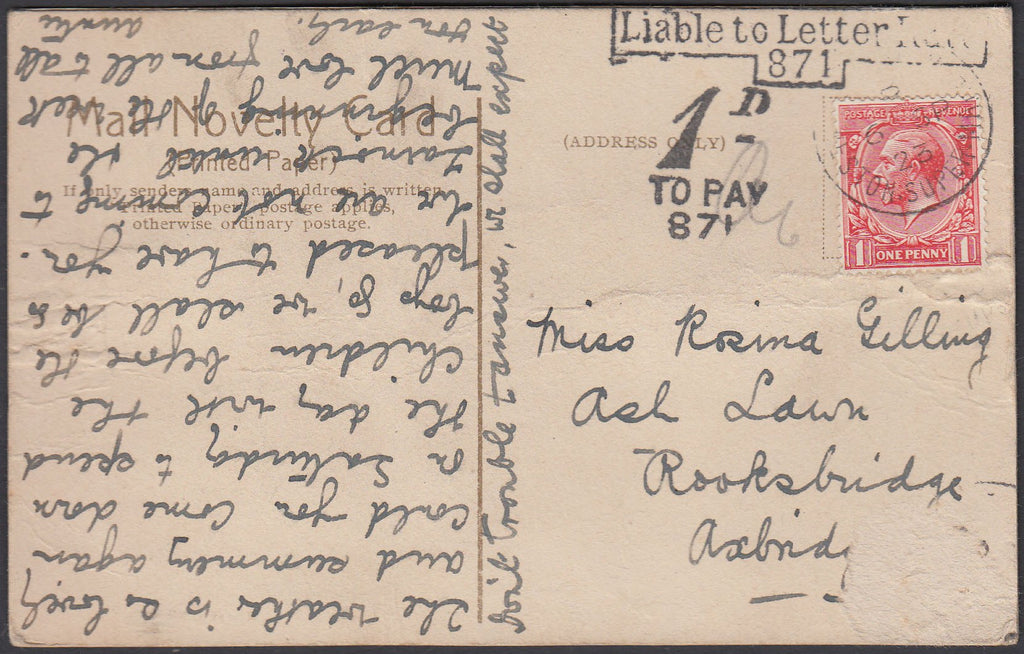 Liable to Letter Rate
871
1D
TO PAY
871
(ADDRESS ONLY)
POSTAGE REVENUE
1 ONE PENNY 1
Miss Rosina Gilling
Ash Lawn
Rooksbridge
Axbrid
Mail Novelty Card
(Printed Paper)
If only senders name and address is written
Printed Papers postage applies,
otherwise ordinary postage.
The weather is so lovely
and summery again
could you come down
on Saturday to spend
the day with the
children before the
boys go, we shall be so
pleased to have you.
We are not coming to
until the
beginning of the week
Much love from all & all
auntie
Don't trouble to answer, we shall expect
you early.